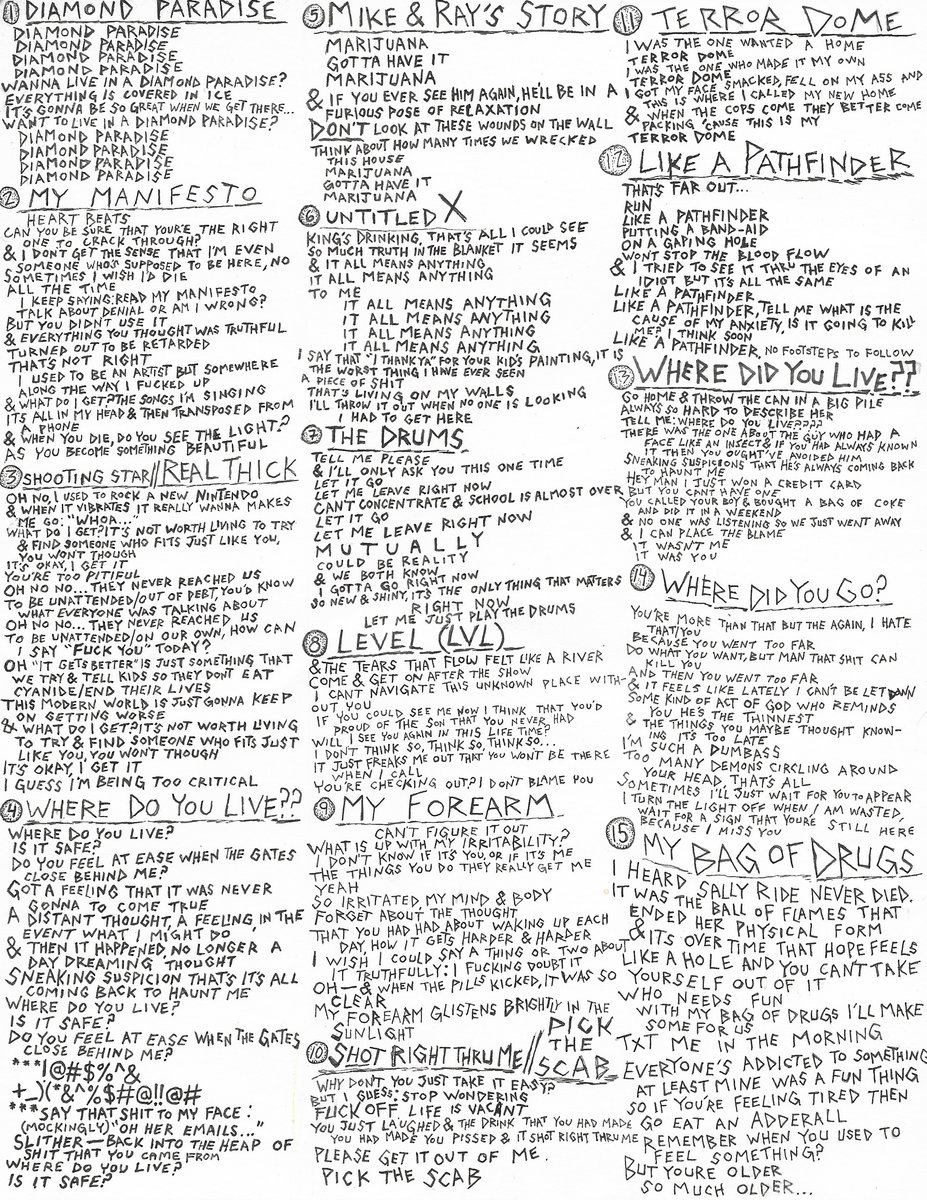 ① DIAMOND PARADISE
DIAMOND PARADISE
DIAMOND PARADISE
DIAMOND PARADISE
DIAMOND PARADISE
WANNA LIVE IN A DIAMOND PARADISE?
EVERYTHING IS COVERED IN ICE
IT'S GONNA BE SO GREAT WHEN WE GET THERE...
WANT TO LIVE IN A DIAMOND PARADISE?
DIAMOND PARADISE
DIAMOND PARADISE
DIAMOND PARADISE
DIAMOND PARADISE
② MY MANIFESTO
HEART BEATS
CAN YOU BE SURE THAT YOU'RE THE RIGHT
ONE TO CRACK THROUGH?
& I DON'T GET THE SENSE THAT I'M EVEN
SOMEONE WHO'S SUPPOSED TO BE HERE, NO
SOMETIMES I WISH I'D DIE
ALL THE TIME
I KEEP SAYING: READ MY MANIFESTO
TALK ABOUT DENIAL OR AM I WRONG?
BUT YOU DIDN'T USE IT
& EVERYTHING YOU THOUGHT WAS TRUTHFUL
TURNED OUT TO BE RETARDED
THAT'S NOT RIGHT
I USED TO BE AN ARTIST BUT SOMEWHERE
ALONG THE WAY I FUCKED UP
& WHAT DO I GET? THE SONGS I'M SINGING
ITS ALL IN MY HEAD & THEN TRANSPOSED FROM
A PHONE
& WHEN YOU DIE, DO YOU SEE THE LIGHT?
AS YOU BECOME SOMETHING BEAUTIFUL
③ SHOOTING STAR//REAL THICK
OH NO, I USED TO ROCK A NEW NINTENDO
& WHEN IT VIBRATES IT REALLY WANNA MAKES
ME GO: "WHOA..."
WHAT DO I GET? IT'S NOT WORTH LIVING TO TRY
& FIND SOMEONE WHO FITS JUST LIKE YOU,
YOU WON'T THOUGH
IT'S OKAY, I GET IT
YOU'RE TOO PITIFUL
OH NO NO... THEY NEVER REACHED US
TO BE UNATTENDED/OUT OF DEBT, YOU'D KNOW
WHAT EVERYONE WAS TALKING ABOUT
OH NO NO... THEY NEVER REACHED US
TO BE UNATTENDED/ON OUR OWN, HOW CAN
I SAY "FUCK YOU" TODAY?
OH "IT GETS BETTER" IS JUST SOMETHING THAT
WE TRY & TELL KIDS SO THEY DONT EAT
CYANIDE/END THEIR LIVES
THIS MODERN WORLD IS JUST GONNA KEEP
ON GETTING WORSE
& WHAT DO I GET? IT'S NOT WORTH LIVING
TO TRY & FIND SOMEONE WHO FITS JUST
LIKE YOU, YOU WON'T THOUGH
IT'S OKAY, I GET IT
I GUESS I'M BEING TOO CRITICAL
④ WHERE DO YOU LIVE??
WHERE DO YOU LIVE?
IS IT SAFE?
DO YOU FEEL AT EASE WHEN THE GATES
CLOSE BEHIND ME?
GOT A FEELING THAT IT WAS NEVER
GONNA TO COME TRUE
A DISTANT THOUGHT, A FEELING IN THE
EVENT WHAT I MIGHT DO
& THEN IT HAPPENED, NO LONGER A
DAY DREAMING THOUGHT
SNEAKING SUSPICION THAT'S IT'S ALL
COMING BACK TO HAUNT ME
WHERE DO YOU LIVE?
IS IT SAFE?
DO YOU FEEL AT EASE WHEN THE GATES
CLOSE BEHIND ME?
***!@#$%^&
+_)(*&^%$#@!!@#
***SAY THAT SHIT TO MY FACE:
(MOCKINGLY) "OH HER EMAILS..."
SLITHER—BACK INTO THE HEAP OF
SHIT THAT YOU CAME FROM
WHERE DO YOU LIVE?
IS IT SAFE?
⑤ MIKE & RAY'S STORY
MARIJUANA
GOTTA HAVE IT
MARIJUANA
& IF YOU EVER SEE HIM AGAIN, HE'LL BE IN A
FURIOUS POSE OF RELAXATION
DON'T LOOK AT THESE WOUNDS ON THE WALL
THINK ABOUT HOW MANY TIMES WE WRECKED
THIS HOUSE
MARIJUANA
GOTTA HAVE IT
MARIJUANA
⑥ UNTITLED X
KING'S DRINKING, THAT'S ALL I COULD SEE
SO MUCH TRUTH IN THE BLANKET IT SEEMS
& IT ALL MEANS ANYTHING
IT ALL MEANS ANYTHING
TO ME
IT ALL MEANS ANYTHING
IT ALL MEANS ANYTHING
IT ALL MEANS ANYTHING
IT ALL MEANS ANYTHING
I SAY THAT "I THANKYA" FOR YOUR KID'S PAINTING, IT IS
THE WORST THING I HAVE EVER SEEN
A PIECE OF SHIT
THAT'S LIVING ON MY WALLS
I'LL THROW IT OUT WHEN NO ONE IS LOOKING
I HAD TO GET HERE
⑦ THE DRUMS
TELL ME PLEASE
& I'LL ONLY ASK YOU THIS ONE TIME
LET IT GO
LET ME LEAVE RIGHT NOW
CAN'T CONCENTRATE & SCHOOL IS ALMOST OVER
LET IT GO
LET ME LEAVE RIGHT NOW
MUTUALLY
COULD BE REALITY
& WE BOTH KNOW
I GOTTA GO RIGHT NOW
SO NEW & SHINY, IT'S THE ONLY THING THAT MATTERS
RIGHT NOW
LET ME JUST PLAY THE DRUMS
⑧ LEVEL (LVL)
& THE TEARS THAT FLOW FELT LIKE A RIVER
COME & GET ON AFTER THE SHOW
I CANT NAVIGATE THIS UNKNOWN PLACE WITH-
OUT YOU
IF YOU COULD SEE ME NOW I THINK THAT YOU'D
PROUD OF THE SON THAT YOU NEVER HAD
WILL I SEE YOU AGAIN IN THIS LIFE TIME?
I DON'T THINK SO, THINK SO, THINK SO...
IT JUST FREAKS ME OUT THAT YOU WON'T BE THERE
WHEN I CALL
YOU'RE CHECKING OUT? I DON'T BLAME YOU
⑨ MY FOREARM
CAN'T FIGURE IT OUT
WHAT IS UP WITH MY IRRITABILITY?
I DON'T KNOW IF IT'S YOU, OR IF IT'S ME
THE THINGS YOU DO THEY REALLY GET ME
YEAH
SO IRRITATED, MY MIND & BODY
FORGET ABOUT THE THOUGHT
THAT YOU HAD HAD ABOUT WAKING UP EACH
DAY, HOW IT GETS HARDER & HARDER
I WISH I COULD SAY A THING OR TWO ABOUT
IT TRUTHFULLY: I FUCKING DOUBT IT
OH—& WHEN THE PILLS KICKED, IT WAS SO
CLEAR
MY FOREARM GLISTENS BRIGHTLY IN THE
SUNLIGHT
⑩ SHOT RIGHT THRU ME // PICK THE SCAB
WHY DON'T YOU JUST TAKE IT EASY?
BUT I GUESS: STOP WONDERING
FUCK OFF LIFE IS VACANT
YOU JUST LAUGHED & THE DRINK THAT YOU HAD MADE
YOU HAD MADE YOU PISSED & IT SHOT RIGHT THRU ME
PLEASE GET IT OUT OF ME.
PICK THE SCAB
⑪ TERROR DOME
I WAS THE ONE WANTED A HOME
TERROR DOME
I WAS THE ONE WHO MADE IT MY OWN
TERROR DOME
I GOT MY FACE SMACKED, FELL ON MY ASS AND
THIS IS WHERE I CALLED MY NEW HOME
& WHEN THE COPS COME THEY BETTER COME
PACKING 'CAUSE THIS IS MY
TERROR DOME
⑫ LIKE A PATHFINDER
THAT'S FAR OUT...
RUN
LIKE A PATHFINDER
PUTTING A BAND-AID
ON A GAPING HOLE
WONT STOP THE BLOOD FLOW
& I TRIED TO SEE IT THRU THE EYES OF AN
IDIOT BUT IT'S ALL THE SAME
LIKE A PATHFINDER
LIKE A PATHFINDER, TELL ME WHAT IS THE
CAUSE OF MY ANXIETY, IS IT GOING TO KILL
ME? I THINK SOON
LIKE A PATHFINDER, NO FOOTSTEPS TO FOLLOW
⑬ WHERE DID YOU LIVE??
GO HOME & THROW THE CAN IN A BIG PILE
ALWAYS SO HARD TO DESCRIBE HER
TELL ME: WHERE DO YOU LIVE????
THERE WAS THE ONE ABOUT THE GUY WHO HAD A
FACE LIKE AN INSECT & IF YOU HAD ALWAYS KNOWN
IT THEN YOU OUGHT'VE AVOIDED HIM
SNEAKING SUSPICIONS THAT HE'S ALWAYS COMING BACK
TO HAUNT ME
HEY MAN I JUST WON A CREDIT CARD
BUT YOU CAN'T HAVE ONE
YOU CALLED YOUR BOY & BOUGHT A BAG OF COKE
AND DID IT IN A WEEKEND
& NO ONE WAS LISTENING SO WE JUST WENT AWAY
& I CAN PLACE THE BLAME
IT WASN'T ME
IT WAS YOU
⑭ WHERE DID YOU GO?
YOU'RE MORE THAN THAT BUT THE AGAIN, I HATE
THAT/YOU
BECAUSE YOU WENT TOO FAR
DO WHAT YOU WANT, BUT MAN THAT SHIT CAN
KILL YOU
AND THEN YOU WENT TOO FAR
& IT FEELS LIKE LATELY I CAN'T BE LET DOWN
SOME KIND OF ACT OF GOD WHO REMINDS
YOU HE'S THE THINNEST
& THE THINGS YOU MAYBE THOUGHT KNOW-
ING IT'S TOO LATE
I'M SUCH A DUMBASS
TOO MANY DEMONS CIRCLING AROUND
YOUR HEAD, THAT'S ALL
SOMETIMES I'LL JUST WAIT FOR YOU TO APPEAR
I TURN THE LIGHT OFF WHEN I AM WASTED,
WAIT FOR A SIGN THAT YOU'RE STILL HERE
BECAUSE I MISS YOU
⑮ MY BAG OF DRUGS
I HEARD SALLY RIDE NEVER DIED.
IT WAS THE BALL OF FLAMES THAT
ENDED HER PHYSICAL FORM
& IT'S OVER TIME THAT HOPE FEELS
LIKE A HOLE AND YOU CAN'T TAKE
YOURSELF OUT OF IT
WHO NEEDS FUN
WITH MY BAG OF DRUGS I'LL MAKE
SOME FOR US
TXT ME IN THE MORNING
EVERYONE'S ADDICTED TO SOMETHING
AT LEAST MINE WAS A FUN THING
SO IF YOU'RE FEELING TIRED THEN
GO EAT AN ADDERALL
REMEMBER WHEN YOU USED TO
FEEL SOMETHING?
BUT YOURE OLDER
SO MUCH OLDER...